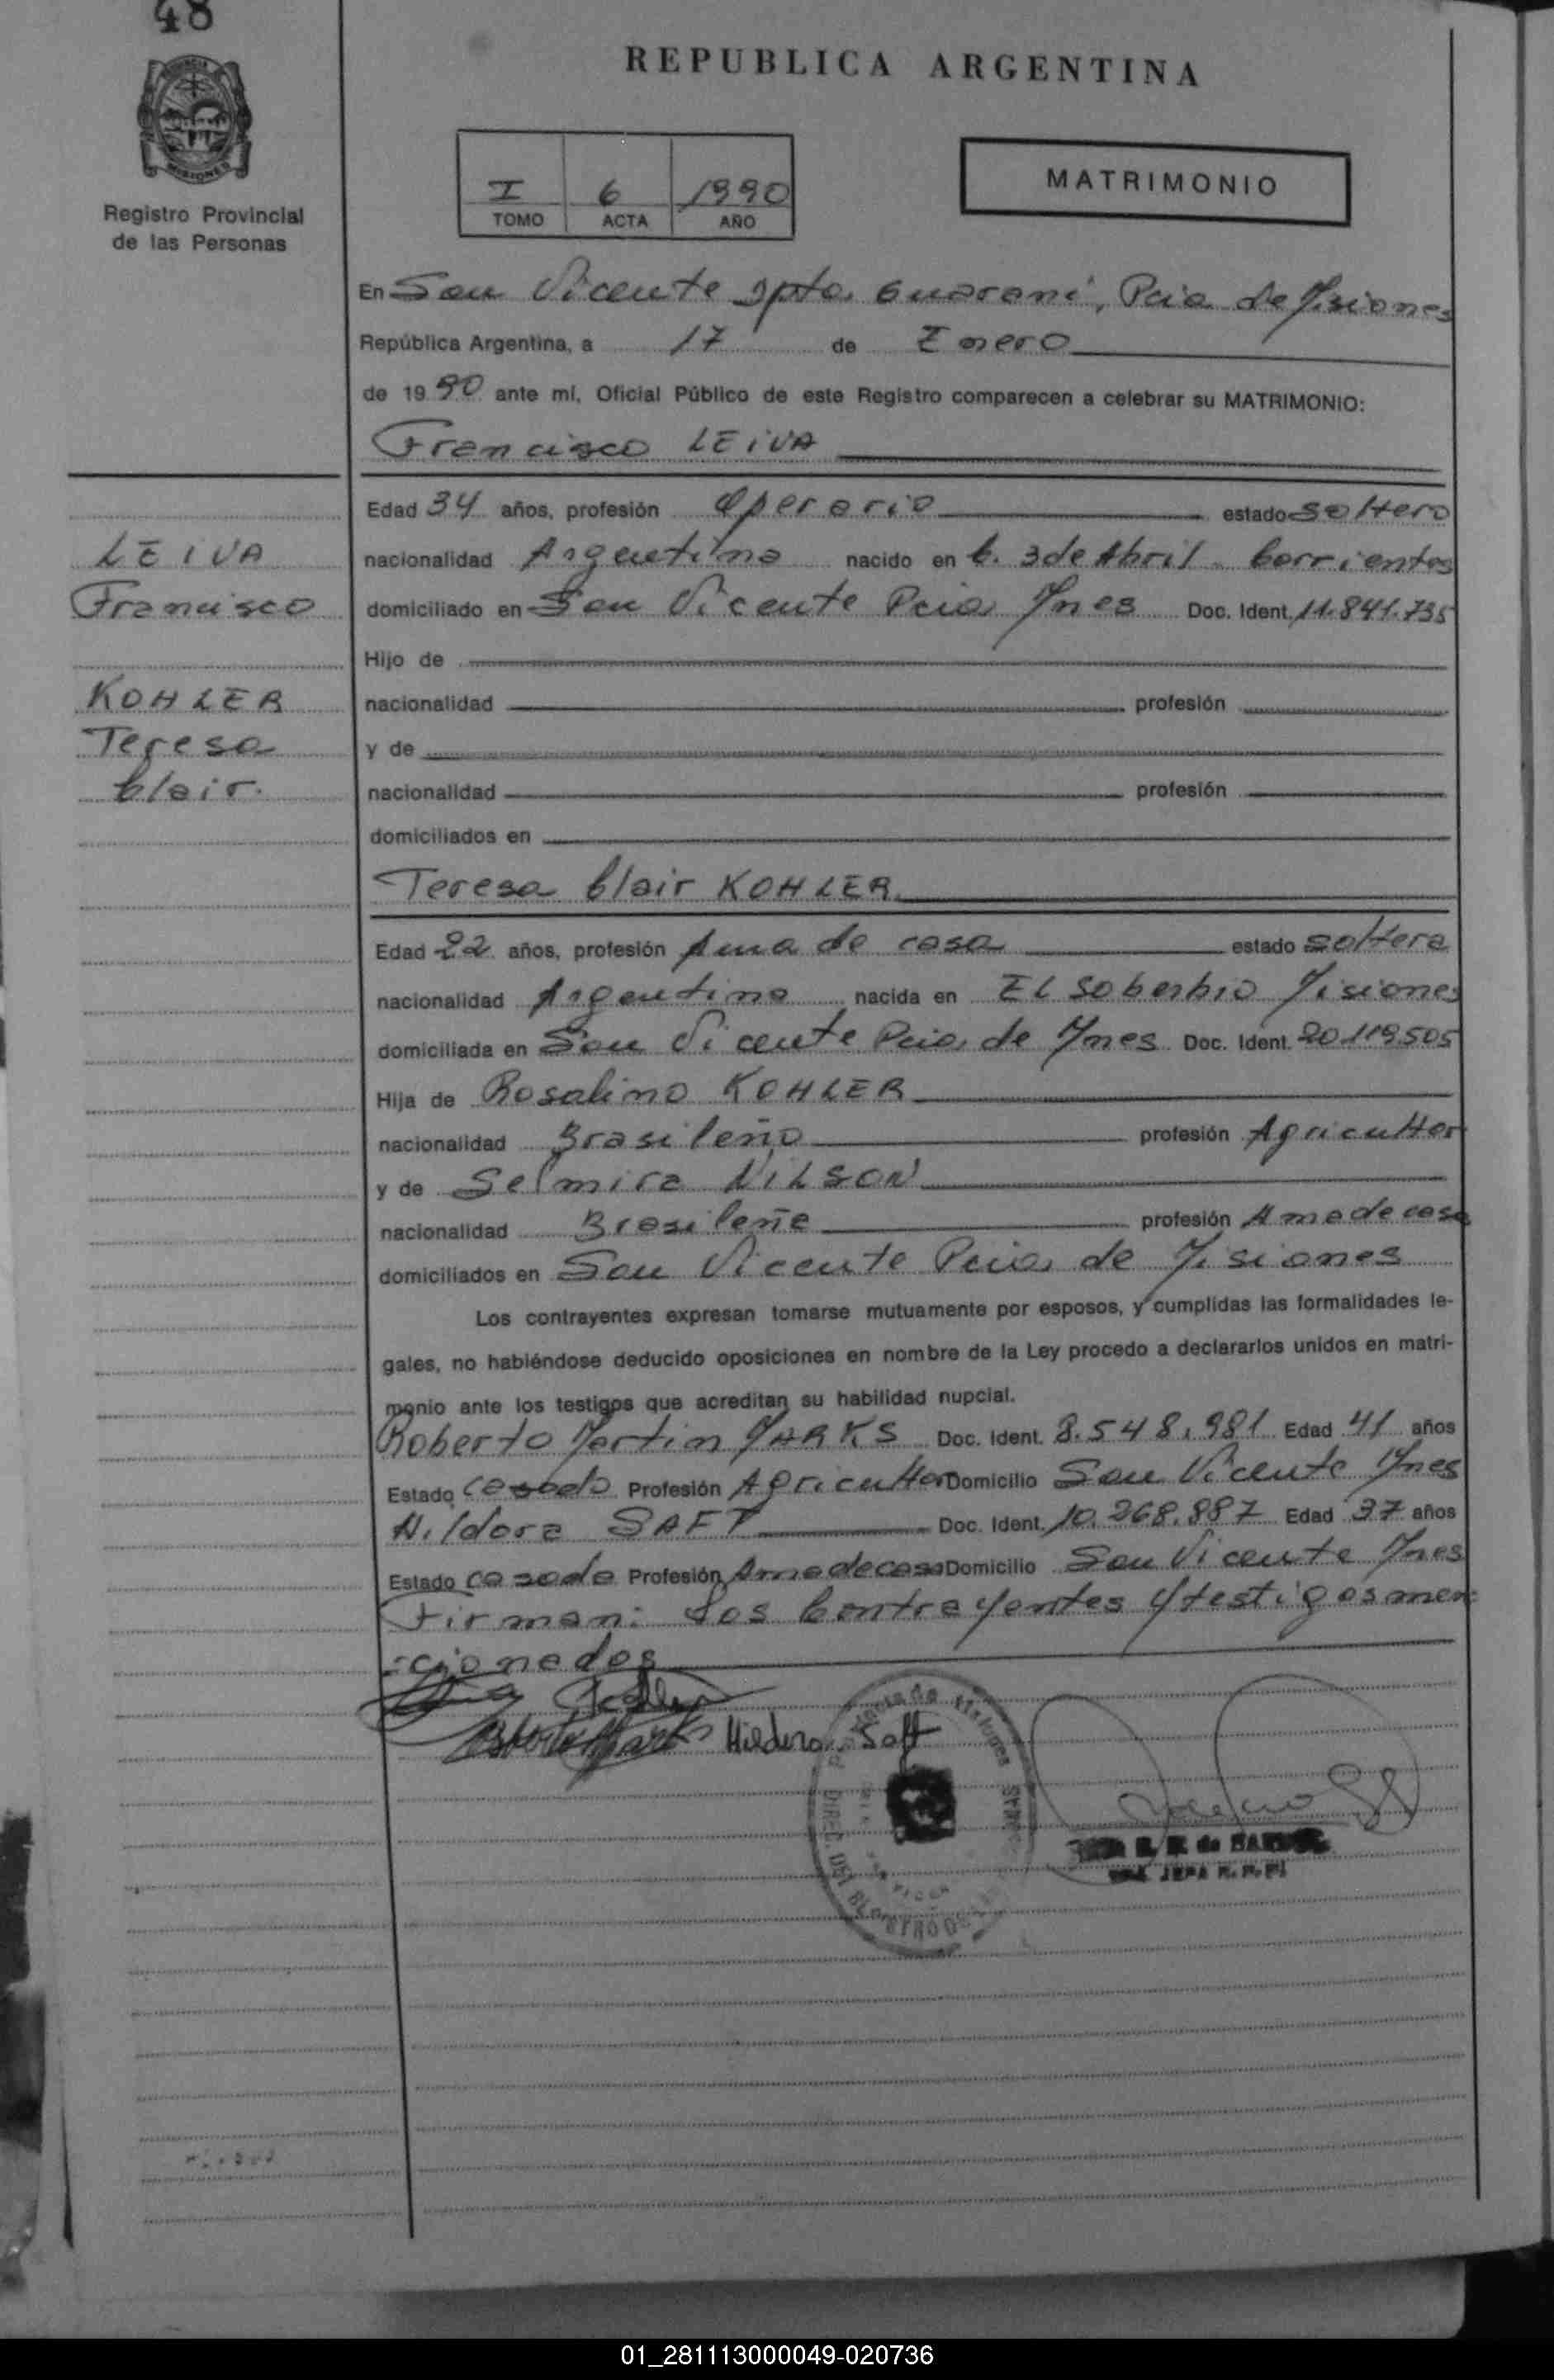 48
REPUBLICA ARGENTINA
MISIONES
Registro Provincial
de las Personas
I 6 1990
TOMO ACTA AÑO
MATRIMONIO
En San Vicente Dpto. Guaraní, Pcia de Misiones
República Argentina, a 17 de Enero
de 1990 ante mí, Oficial Público de este Registro comparecen a celebrar su MATRIMONIO:
Francisco LEIVA
Edad 34 años, profesión Operario estado soltero
LEIVA
nacionalidad Argentino nacido en C. 3 de Abril - Corrientes
Francisco
domiciliado en San Vicente Pcia Mnes Doc. Ident. 11.841.735
Hijo de
KOHLER
nacionalidad profesión
Teresa
y de
Clair.
nacionalidad profesión
domiciliados en
Teresa Clair KOHLER
Edad 22 años, profesión Ama de casa estado soltera
nacionalidad Argentina nacida en El Soberbio Misiones
domiciliada en San Vicente Pcia de Mnes Doc. Ident. 20.119.505
Hija de Rosalino KOHLER
nacionalidad Brasileño profesión Agricultor
y de Selmira NILSON
nacionalidad Brasileña profesión Ama de casa
domiciliados en San Vicente Pcia de Misiones
Los contrayentes expresan tomarse mutuamente por esposos, y cumplidas las formalidades le-
gales, no habiéndose deducido oposiciones en nombre de la Ley procedo a declararlos unidos en matri-
monio ante los testigos que acreditan su habilidad nupcial.
Roberto Martin MARKS Doc. Ident. 8.548.981 Edad 41 años
Estado casado Profesión Agricultor Domicilio San Vicente Mnes
Hildora SAFT Doc. Ident. 10.268.887 Edad 37 años
Estado casada Profesión Ama de casa Domicilio San Vicente Mnes
Firman: Los Contrayentes y testigos men
=cionados
Hildora Saft
DIREC. DEL REGISTRO DE
01_281113000049-020736